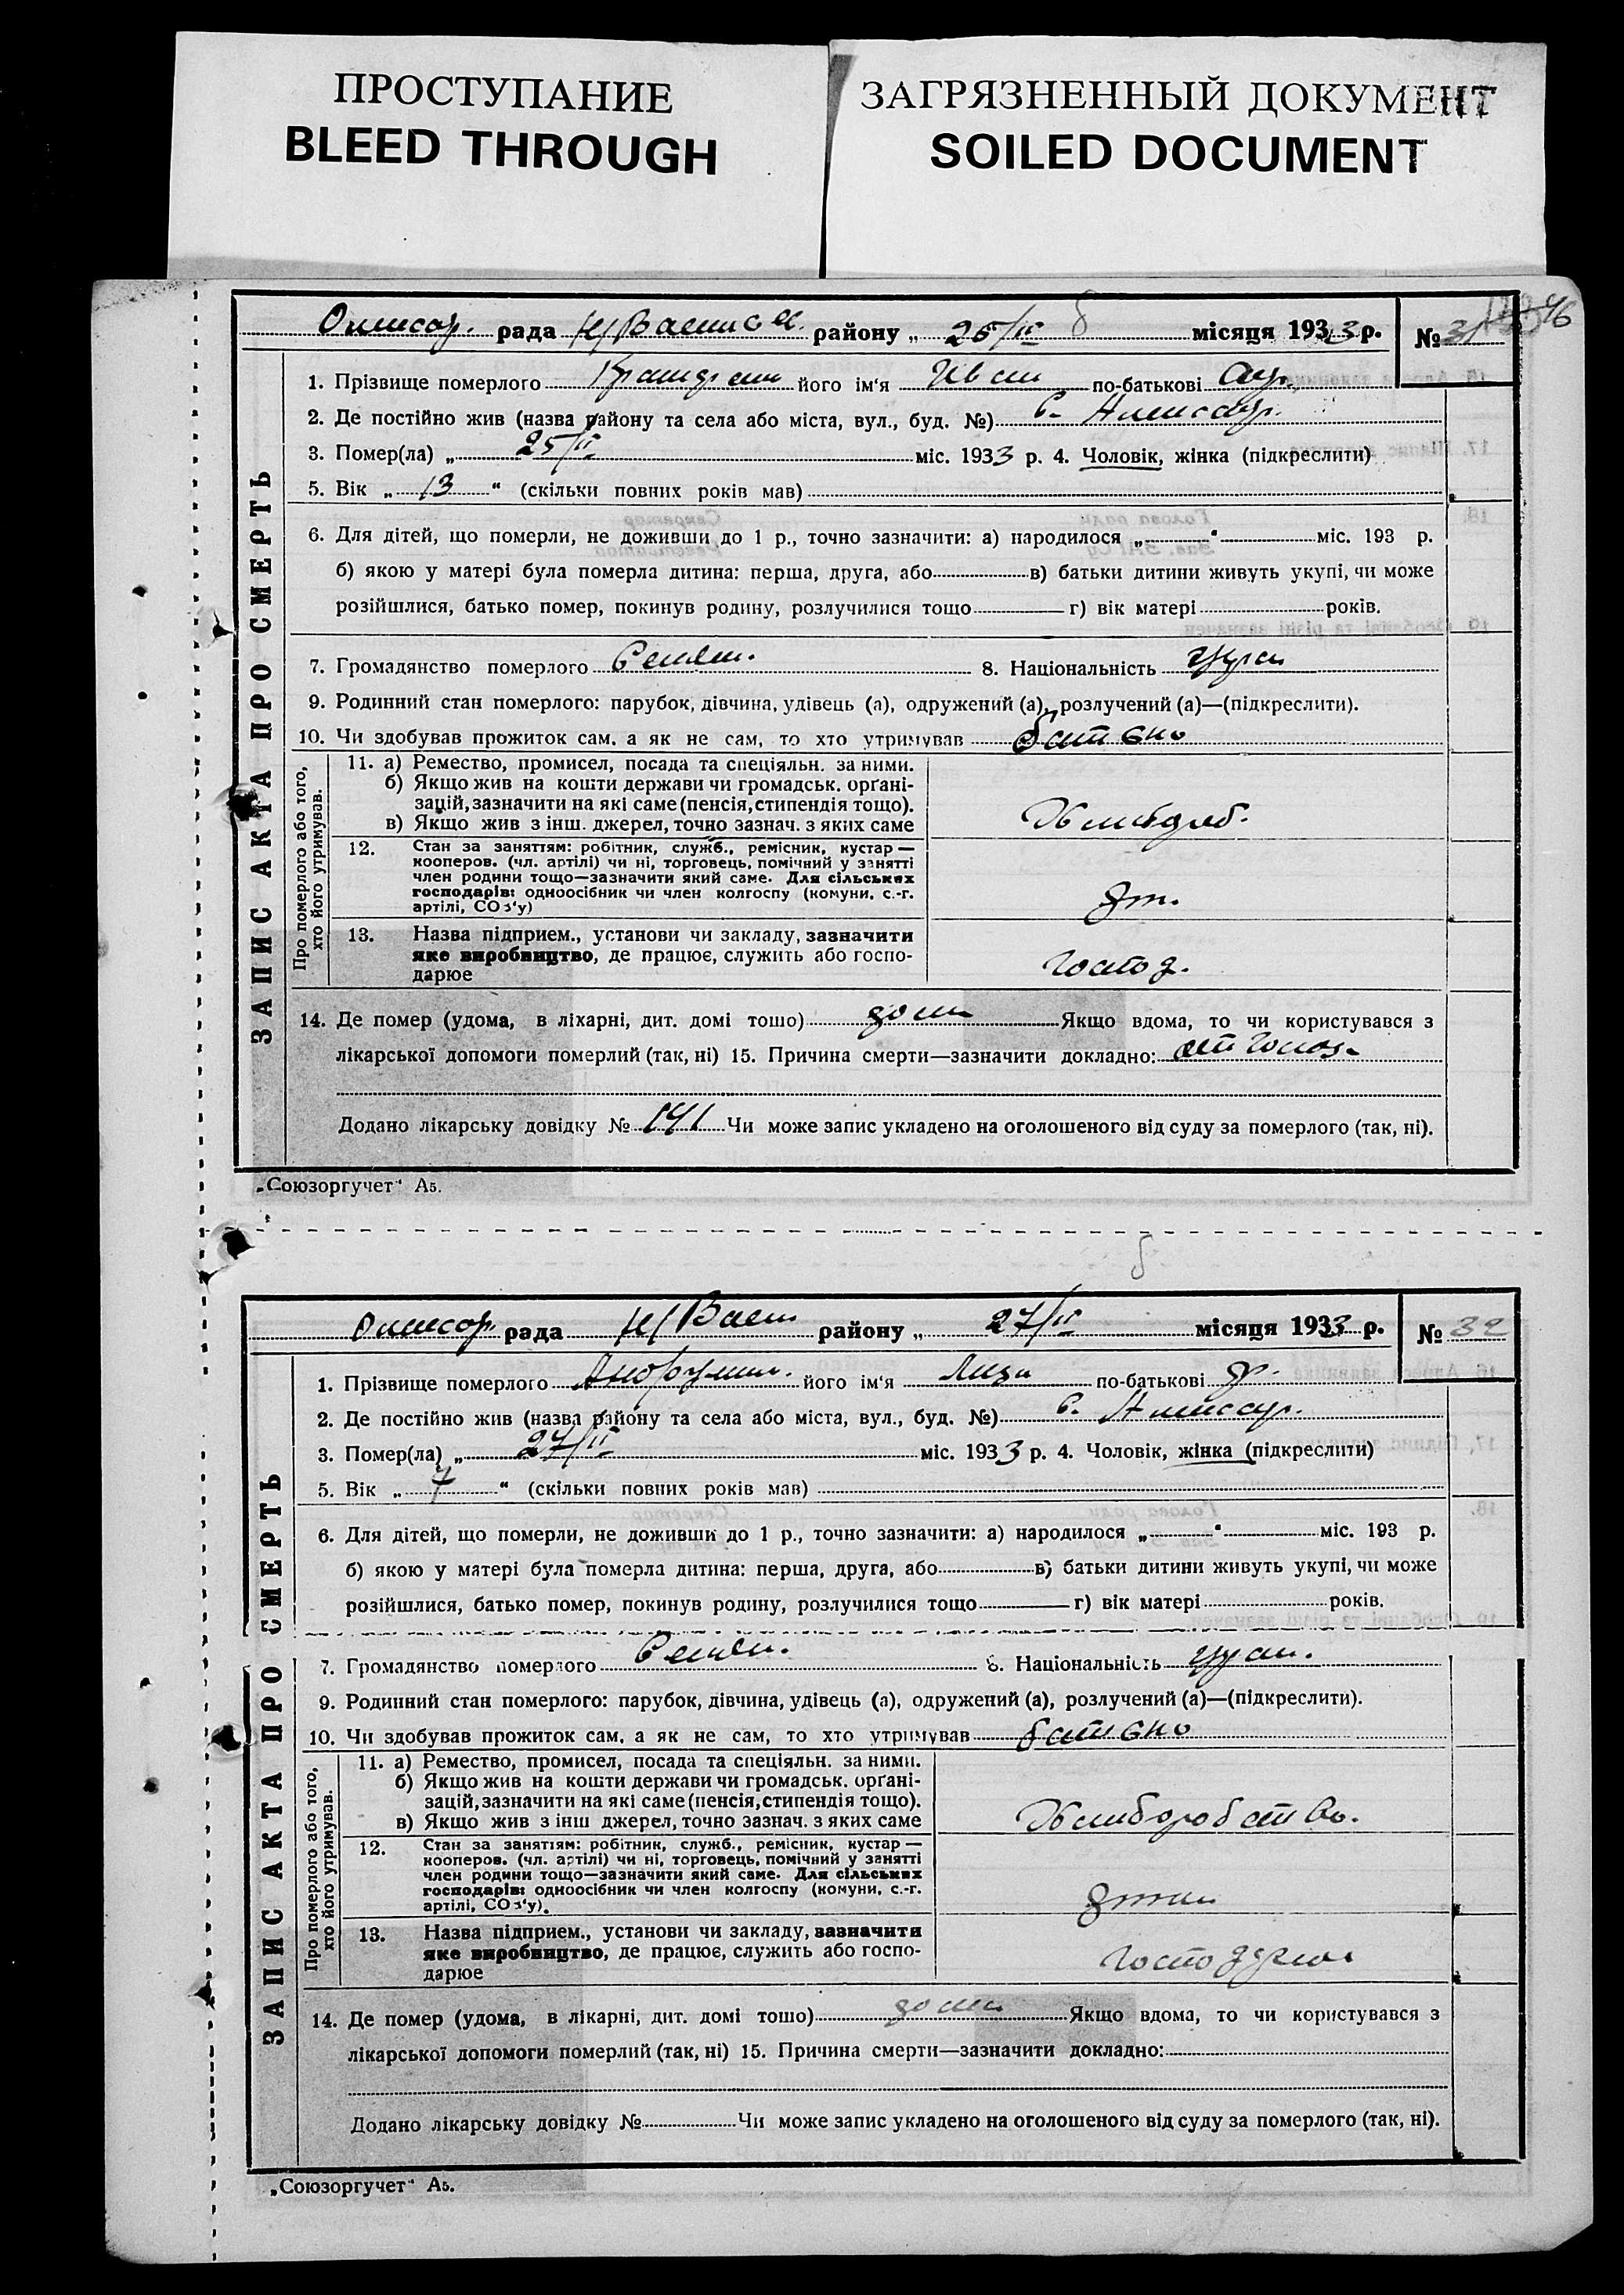 ПРОСТУПАНИЕ
BLEED THROUGH
ЗАГРЯЗНЕННЫЙ ДОКУМЕНТ
SOILED DOCUMENT
ЗАПИС АКТА ПРО СМЕРТЬ
рада району „ 25/II місяця 1933 р. № 31
1. Прізвище померлого його ім'я Иван по-батькові
2. Де постійно жив (назва району та села або міста, вул., буд. №) с.
3. Помер(ла) „ 25/II міс. 1933 р. 4. Чоловік, жінка (підкреслити)
5. Вік „ 13 “ (скільки повних років мав)
6. Для дітей, що померли, не доживши до 1 р., точно зазначити: а) народилося „ “ міс. 193 р.
б) якою у матері була померла дитина: перша, друга, або в) батьки дитини живуть укупі, чи може
розійшлися, батько помер, покинув родину, розлучилися тощо г) вік матері років.
7. Громадянство померлого Селян. 8. Національність
9. Родинний стан померлого: парубок, дівчина, удівець (а), одружений (а), розлучений (а)—(підкреслити).
10. Чи здобував прожиток сам, а як не сам, то хто утримував батько
Про померлого або того, хто його утримував.
11. а) Ремество, промисел, посада та спеціяльн. за ними.
б) Якщо жив на кошти держави чи громадськ. орґані-
зацій, зазначити на які саме (пенсія, стипендія тощо).
в) Якщо жив з інш. джерел, точно зазнач. з яких саме
Хлибороб.
12. Стан за заняттям: робітник, служб., ремісник, кустар —
кооперов. (чл. артілі) чи ні, торговець, помічний у занятті
член родини тощо—зазначити який саме. Для сільських
господарів: одноосібник чи член колгоспу (комуни, с.-г.
артілі, СОЗ'у)
13. Назва підприєм., установи чи закладу, зазначити
яке виробництво, де працює, служить або госпо-
дарює
господ.
14. Де помер (удома, в ліхарні, дит. домі тощо) дома Якщо вдома, то чи користувався з
лікарської допомоги померлий (так, ні) 15. Причина смерти—зазначити докладно: от голод.
Додано лікарську довідку № 141 Чи може запис укладено на оголошеного від суду за померлого (так, ні).
„Союзоргучет“ А5.
ЗАПИС АКТА ПРО СМЕРТЬ
рада району „ 27/II місяця 1933 р. № 32
1. Прізвище померлого його ім'я по-батькові
2. Де постійно жив (назва району та села або міста, вул., буд. №) с.
3. Помер(ла) „ 27/II міс. 1933 р. 4. Чоловік, жінка (підкреслити)
5. Вік „ 7 “ (скільки повних років мав)
6. Для дітей, що померли, не доживши до 1 р., точно зазначити: а) народилося „ “ міс. 193 р.
б) якою у матері була померла дитина: перша, друга, або в) батьки дитини живуть укупі, чи може
розійшлися, батько помер, покинув родину, розлучилися тощо г) вік матері років.
7. Громадянство померлого Селян. 8. Національність
9. Родинний стан померлого: парубок, дівчина, удівець (а), одружений (а), розлучений (а)—(підкреслити).
10. Чи здобував прожиток сам, а як не сам, то хто утримував батько
Про померлого або того, хто його утримував.
11. а) Ремество, промисел, посада та спеціяльн. за ними.
б) Якщо жив на кошти держави чи громадськ. орґані-
зацій, зазначити на які саме (пенсія, стипендія тощо).
в) Якщо жив з інш джерел, точно зазнач. з яких саме
Хлиборобство.
12. Стан за заняттям: робітник, служб., ремісник, кустар —
кооперов. (чл. артілі) чи ні, торговець, помічний у занятті
член родини тощо—зазначити який саме. Для сільських
господарів: одноосібник чи член колгоспу (комуни, с.-г.
артілі, СОЗ'у).
13. Назва підприєм., установи чи закладу, зазначити
яке виробництво, де працює, служить або госпо-
дарює
14. Де помер (удома, в лікарні, дит. домі тощо) дома Якщо вдома, то чи користувався з
лікарської допомоги померлий (так, ні) 15. Причина смерти—зазначити докладно:
Додано лікарську довідку № Чи може запис укладено на оголошеного від суду за померлого (так, ні).
„Союзоргучет“ А5.